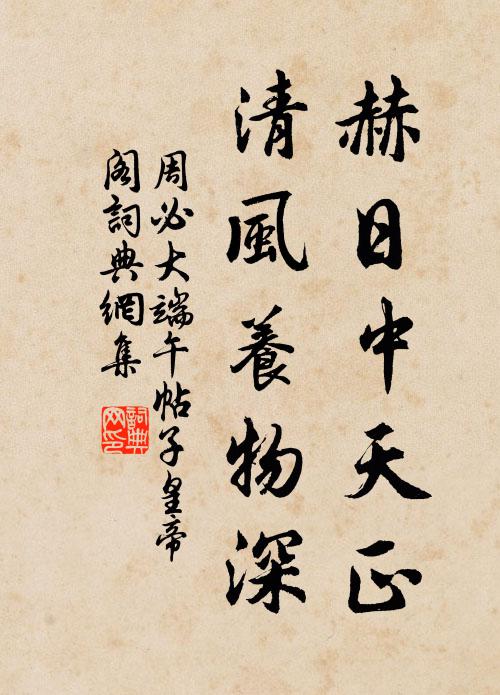 赫日中天正
清風養物深
周必大端午帖子皇帝
閣詞典網集
詞典网印